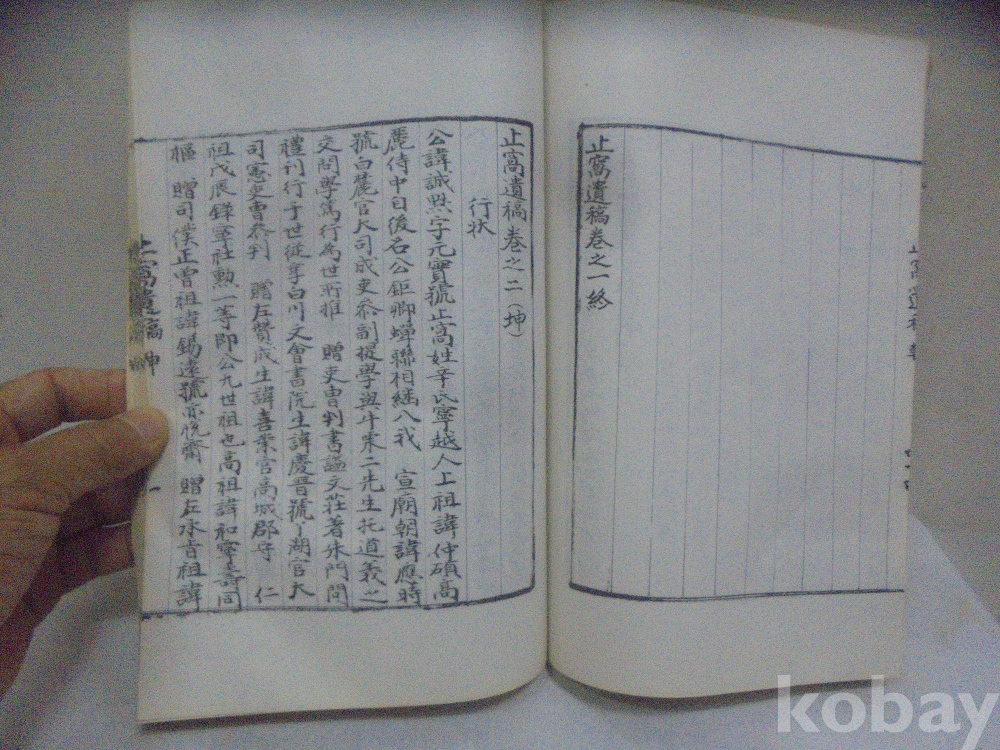 止窩遺稿卷之一終
止窩遺稿卷之二(坤)
行狀
公諱誠默字元實號止窩姓辛氏寧越人上祖諱仲碩高
麗侍中自後名公鉅卿蟬聯相繼入我 宣廟朝諱應時
號白麓官大司成吏參副提學與牛栗二先生托道義之
交問學篤行為世所推 贈吏曹判書謚文莊著朱門問
禮刊行于世從享白川文會書院生諱慶晉號丫湖官大
司憲吏曹參判 贈左贊成生諱喜業官高城郡守 仁
祖戊辰錄寧社勳一等即公九世祖也高祖諱和寧壽同
樞 贈司僕正曾祖諱錫遠號亦悅齋 贈左承旨祖諱
止窩遺稿 坤 一
kobay